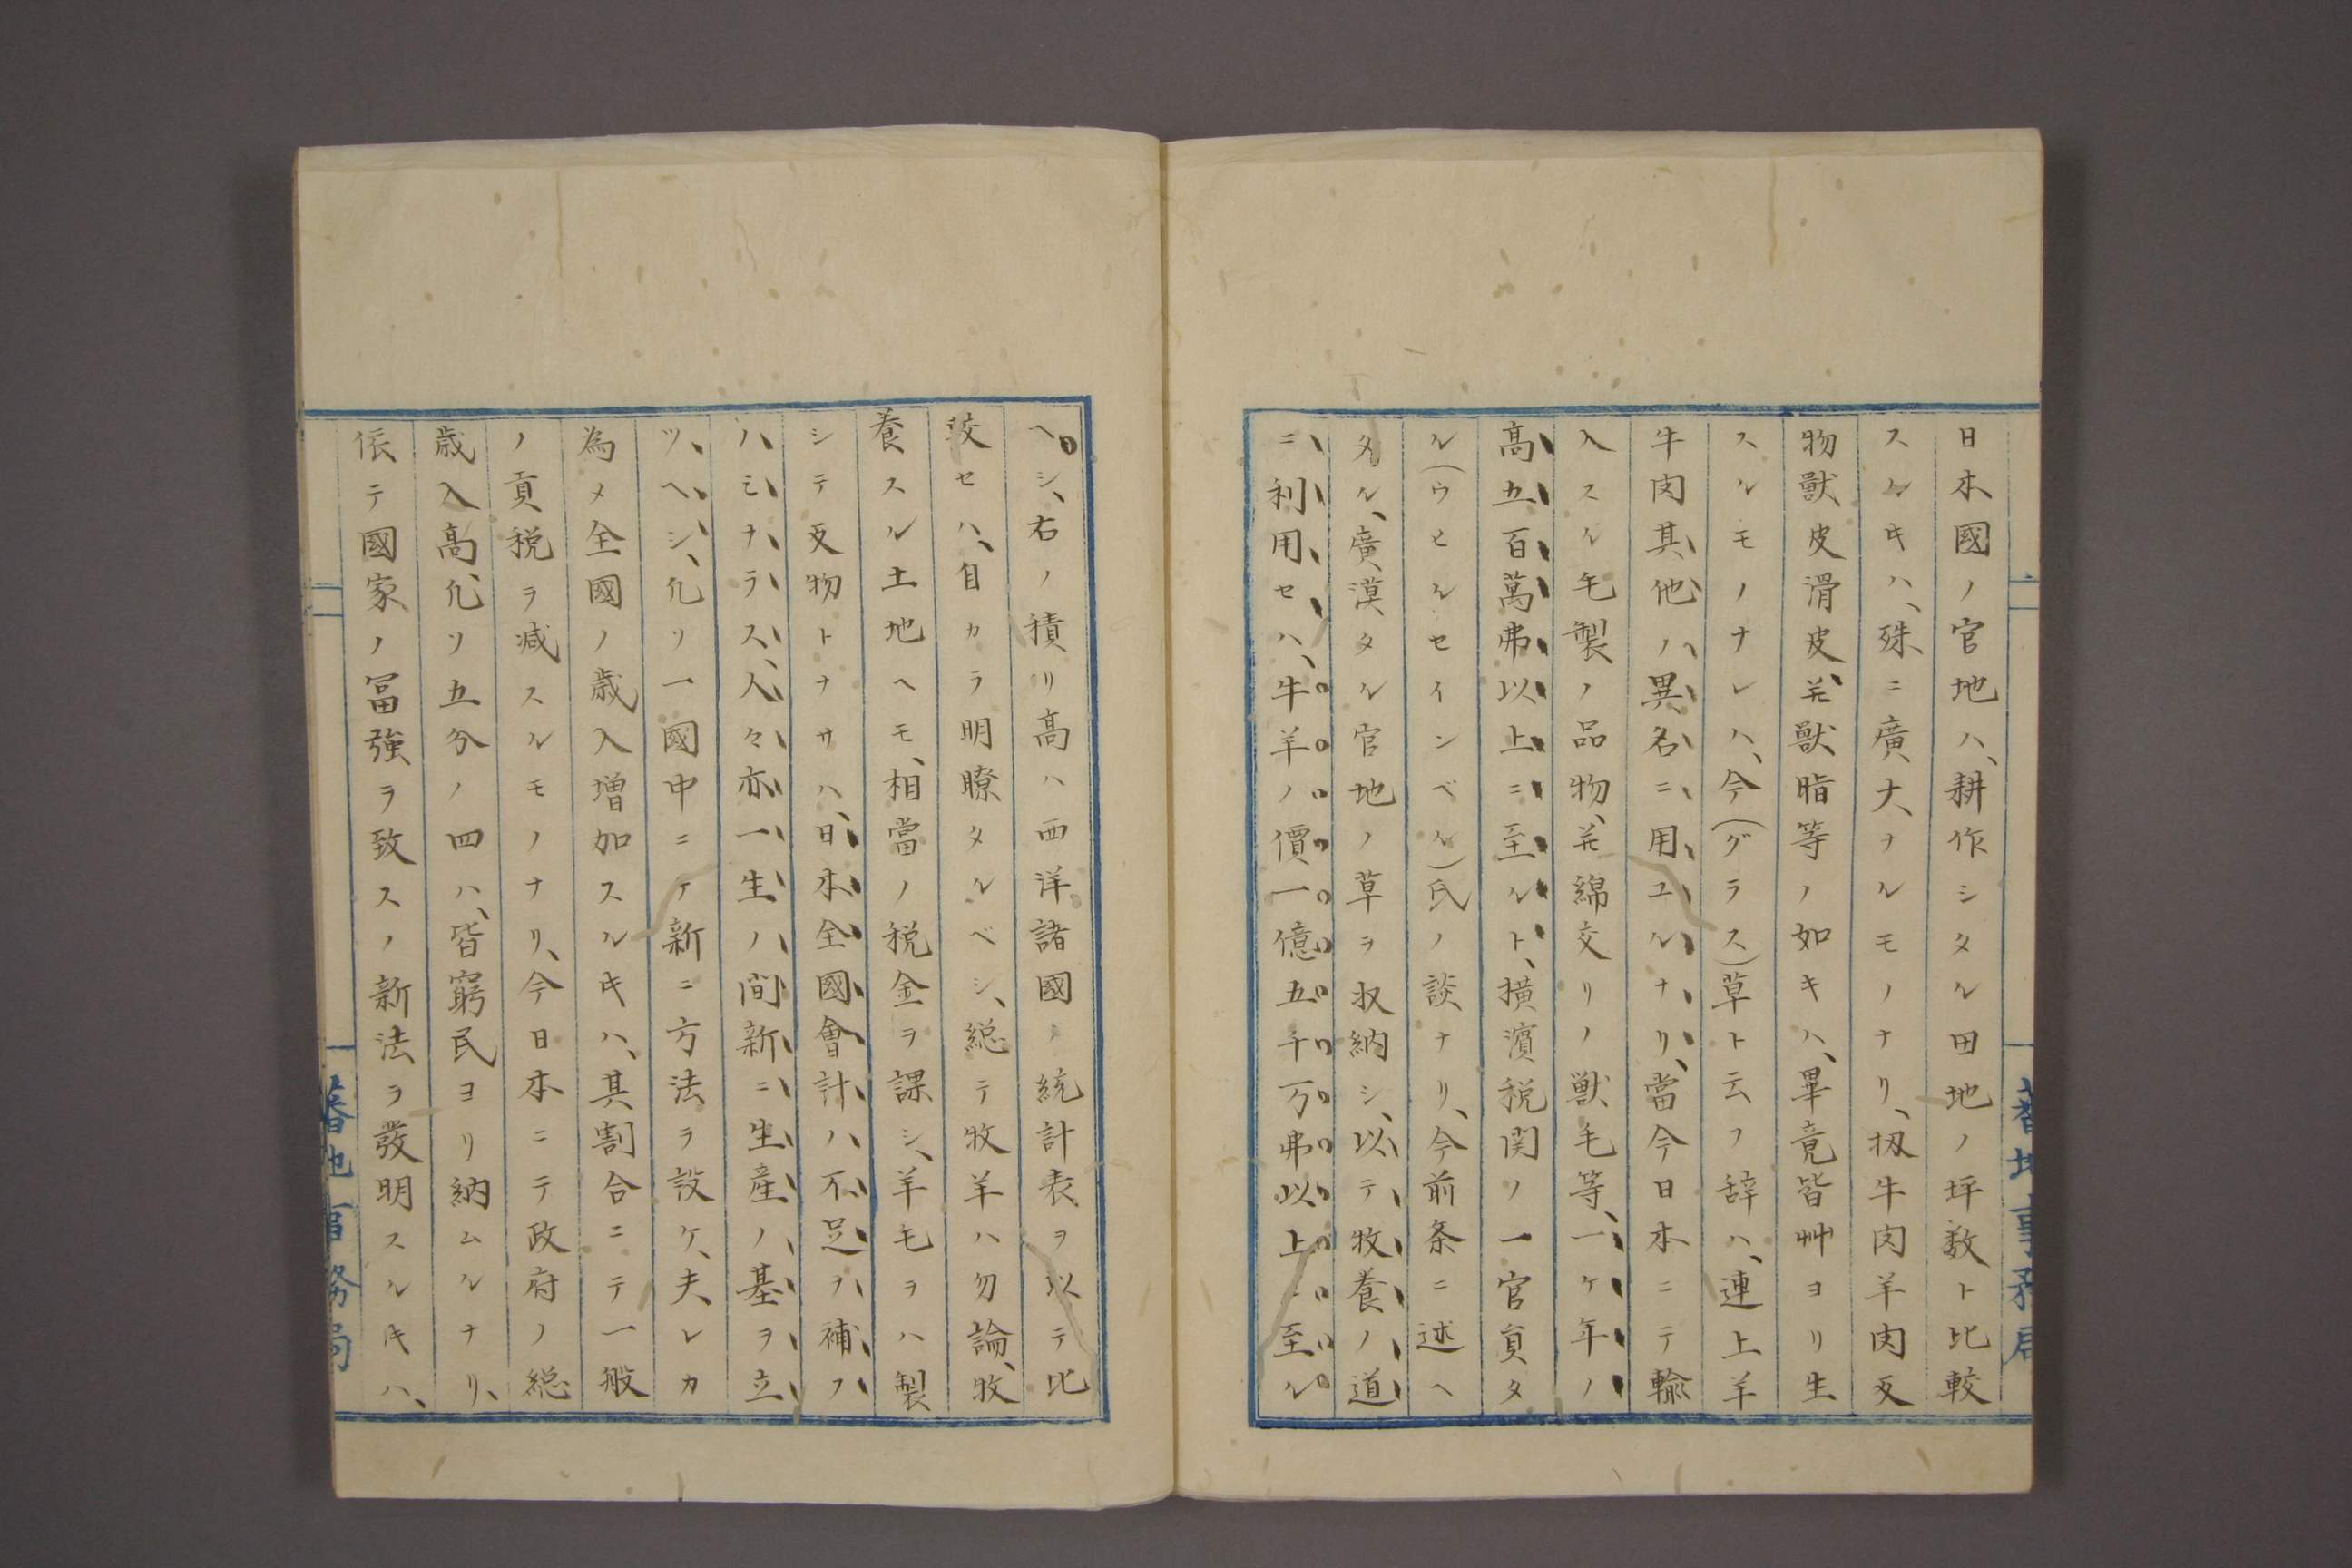 日本國ノ官地ハ、耕作シタル田地ノ坪数ト比較
スルキハ、殊ニ廣大ナルモノナリ、扨牛肉羊肉反
物獸皮滑皮、并獸脂等ノ如キハ、畢竟皆艸ヨリ生
スルモノナレハ、今(グラス)草ト云フ辞ハ、連上羊
牛肉其他ノ異名ニ用ユルナリ、當今日本ニテ輸
入スル毛製ノ品物、并綿交リノ獣毛等、一ケ年ノ
高五百萬弗以上ニ至ルト、横濱税関ノ一官貟タ
ル(ウヒルセインベル)氏ノ談ナリ、今前条ニ述ヘ
タル、廣漠タル官地ノ草ヲ収納シ、以テ牧養ノ道
ニ利用セハ、牛羊ノ價一億五千万弗以上ニ至ル
ヘシ、右ノ積リ高ハ西洋諸國ノ統計表ヲ以テ比
較セハ、自カラ明瞭タルベシ、総テ牧羊ハ勿論、牧
養スル土地ヘモ、相當ノ税金ヲ課シ、羊毛ヲハ製
シテ反物トナサハ、日本全國會計ハ不足ヲ補フ
ノミナラス、人々亦一生ノ間新ニ生産ノ基ヲ立
ツヘシ、凢ソ一國中ニテ新ニ方法ヲ設ケ、夫レカ
為メ全國ノ歳入増加スルキハ、其割合ニテ一般
ノ貢税ヲ减スルモノナリ、今日本ニテ政府ノ総
歳入高、凢ソ五分ノ四ハ、皆窮民ヨリ納ムルナリ、
依テ國家ノ冨強ヲ致スノ新法ヲ發明スルキハ、
蕃地事務局
蕃地事務局